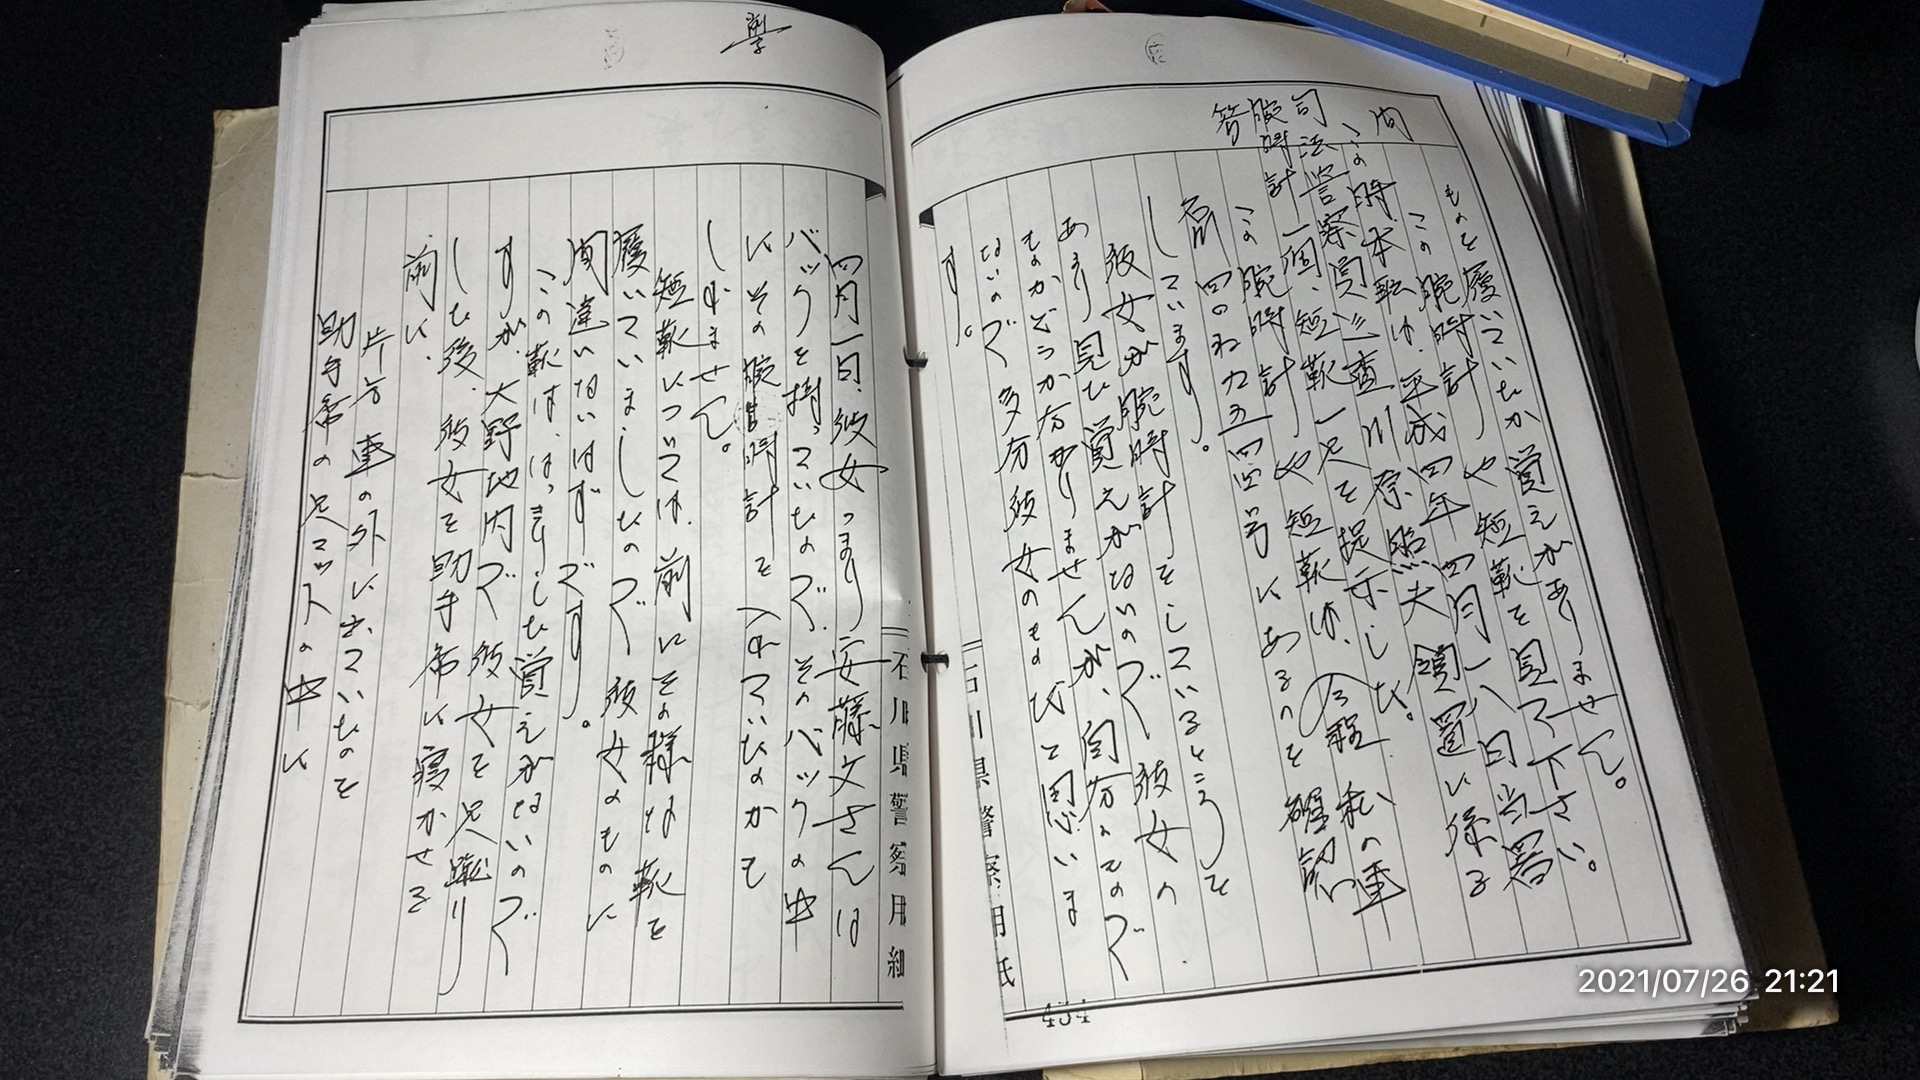 ものを履いていたか覚えがありません。
問 この腕時計や短靴を見て下さい。
この時本職は、平成四年四月一八日当署
司法警察員巡査川原照夫領置に係る
腕時計一個、短靴一足を提示した。
答 この腕時計や短靴は、私の車
石川四〇ね九五四四号にあるのを確認
しています。
彼女が腕時計をしているところを
あまり見た覚えがないので、彼女の
ものかどうか分かりませんが、自分のもので
ないので多分彼女のものだと思いま
す。
石川県警察用紙
434
四月一日、彼女つまり安藤文さんは
バックを持っていたので、そのバックの中
にその腕時計を入れていたのかも
しれません。
短靴については、前にその様な靴を
履いていましたので彼女のものに
間違いないはずです。
この靴は、はっきりした覚えがないので
すが、大野地内で彼女を足蹴り
した後、彼女を助手席に寝かせる
前に、
片方車の外に出ていたのを
助手席の足マットの中に
石川県警察用紙
2021/07/26 21:21